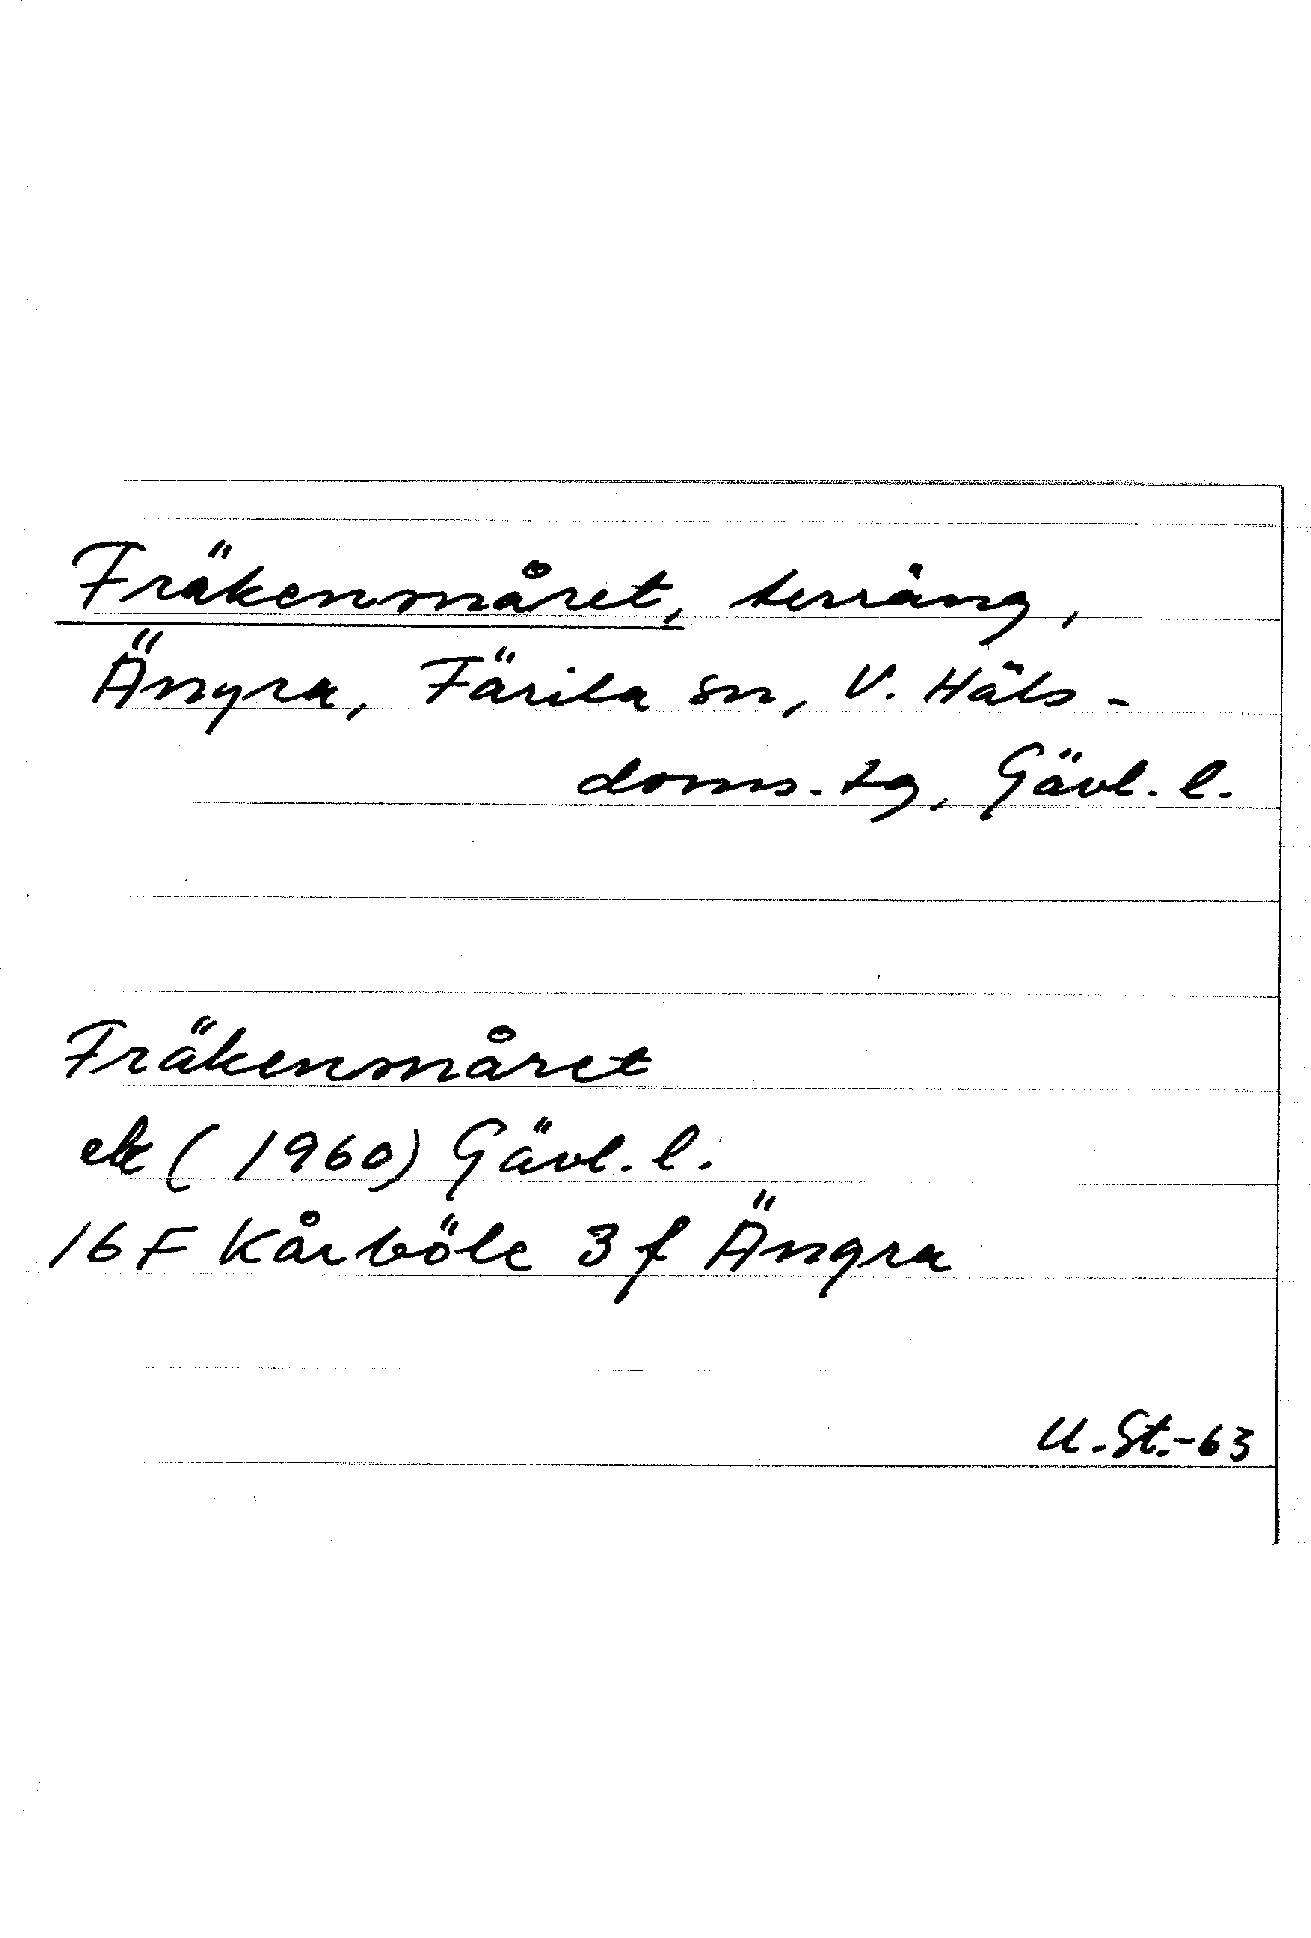 Fräkenmåret, terräng,
Ängra, Färila sn, V. Häls-
doms. tg, Gävl. l.
Fräkenmåret
ek (1960) Gävl. l.
16 F Kårböle 3 f Ängra
U. St. -63